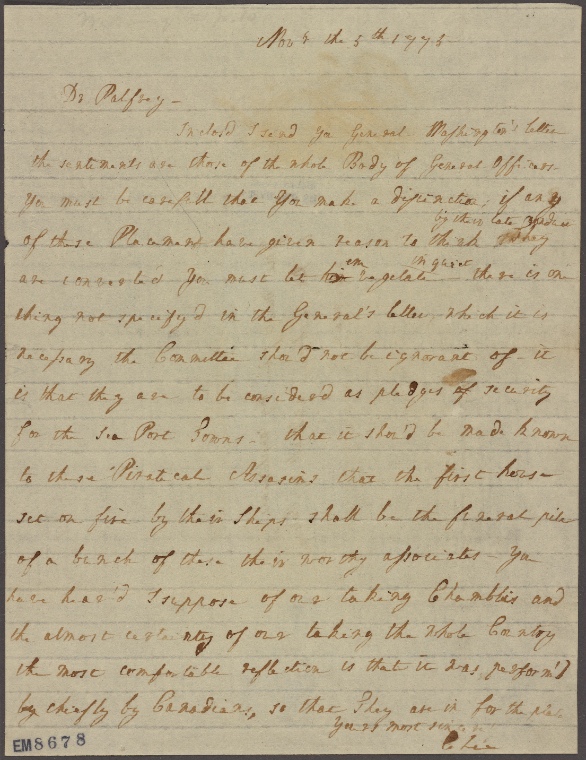 Novr the 5th 1775
Dr Palfrey -
Inclos'd I send you General Washington's letter
the sentiments are those of the whole Body of General Officers-
You must be carefull that You make a distinction, if any
by their late
of these Placemen have given reason to think they
are converted You must let em vegetate in quiet - there is one
thing not specify'd in the General's letter which it is
necessary the Committee shou'd not be ignorant of - it
is that they are to be consider'd as pledges of security
for the Sea Port Towns - that it shou'd be made known
to these Piratical Assasins that the first house
set on fire by their Ships shall be the funeral pile
of a bunch of these their worthy associates - You
have hear'd I suppose of our taking Chamblis and
the almost certainty of our taking the whole Country
the most comfortable reflection is that it was perform'd
by chiefly by Canadians, so that They are in for the
Yours most
C Lee
EM8678